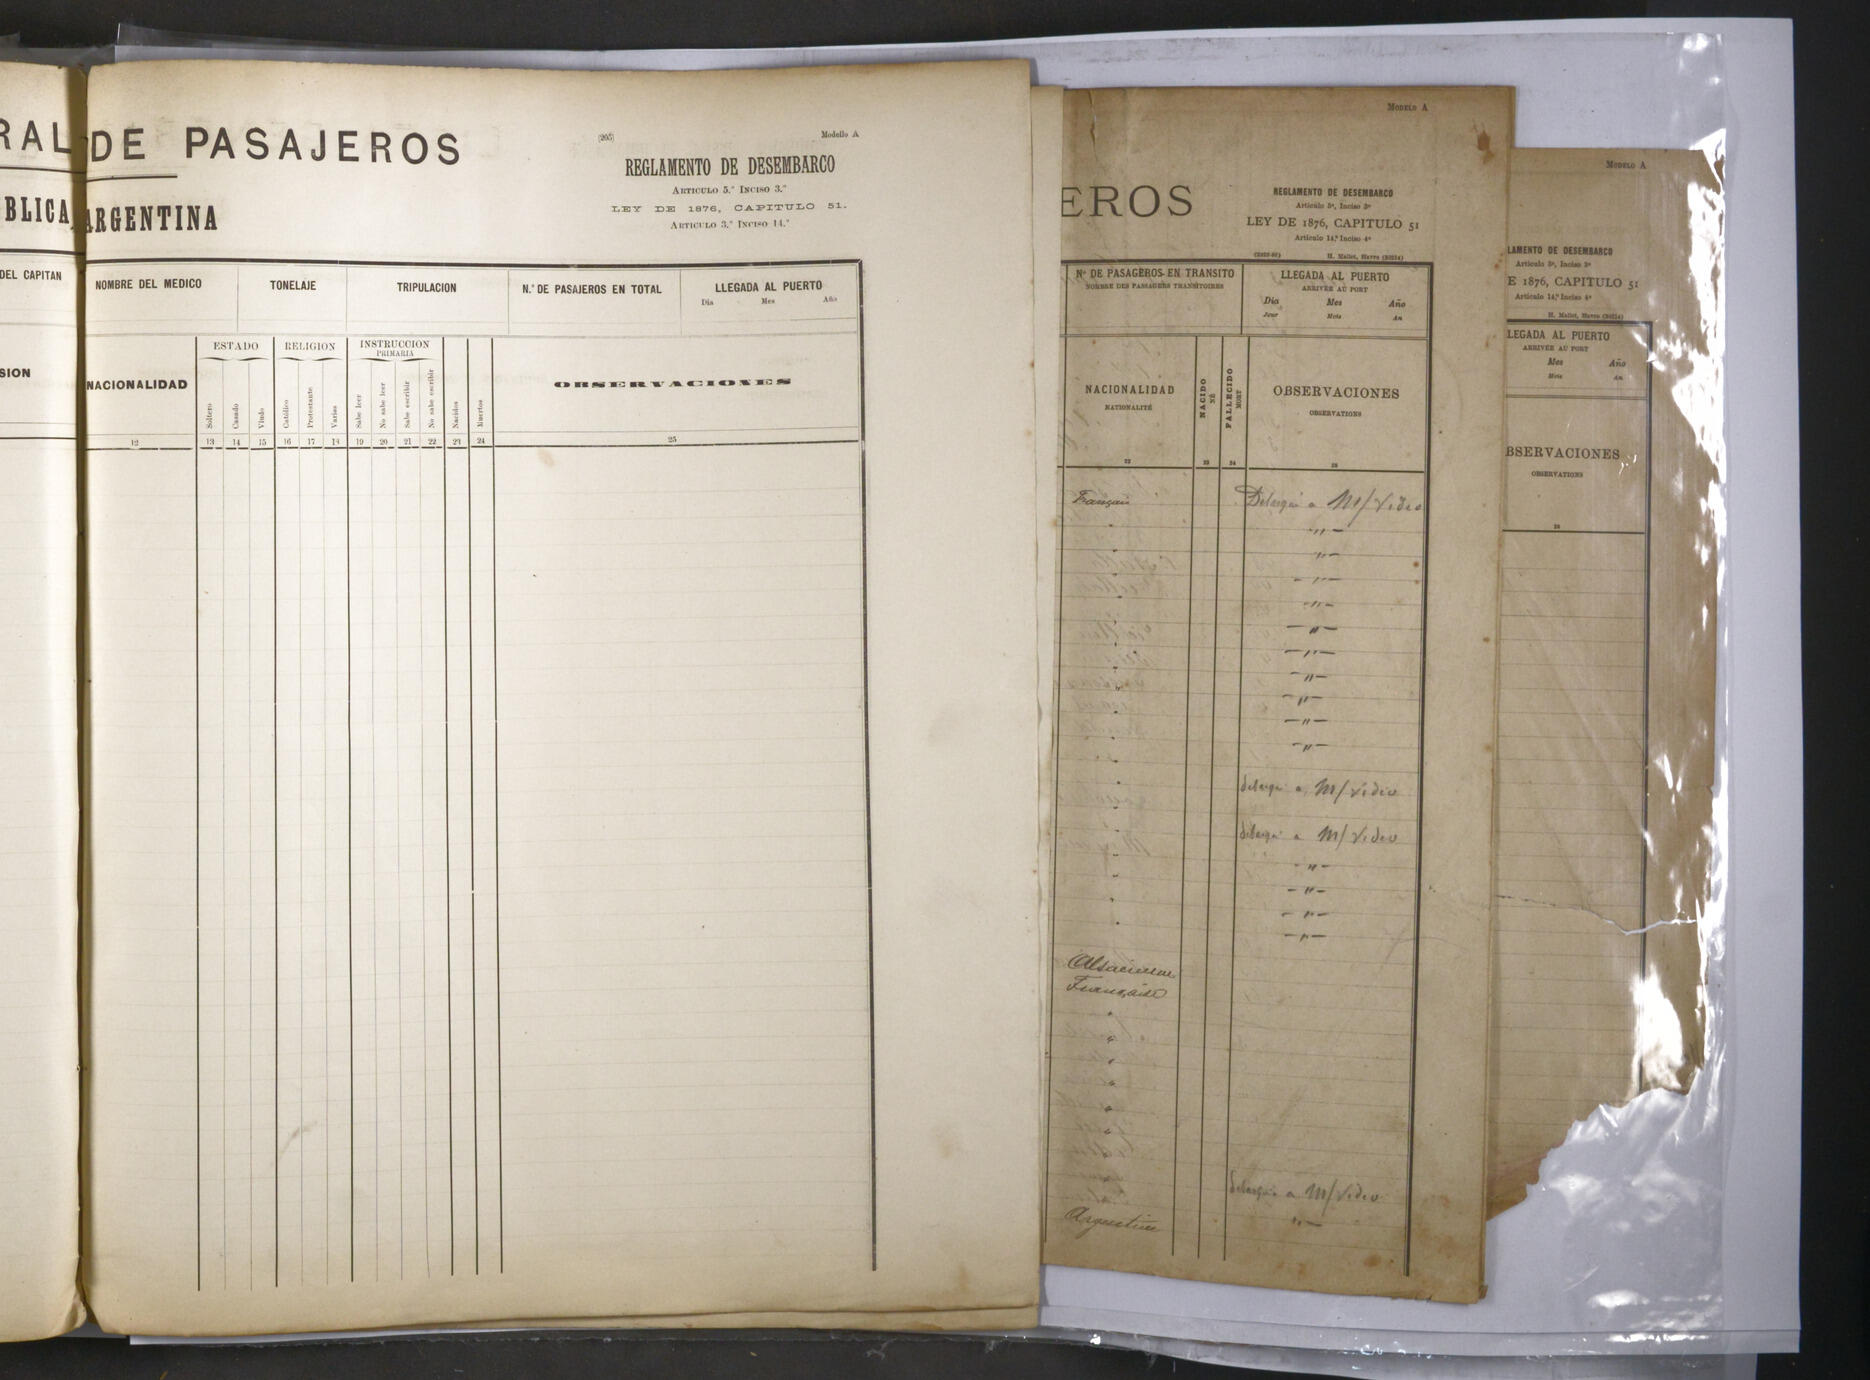 RAL DE PASAJEROS
BLICA ARGENTINA
(205)
Modello A
REGLAMENTO DE DESEMBARCO
ARTICULO 5.º INCISO 3.º
LEY DE 1876, CAPITULO 51.
ARTICULO 3.º INCISO 14.º
DEL CAPITAN
NOMBRE DEL MEDICO
TONELAJE
TRIPULACION
N.º DE PASAJEROS EN TOTAL
LLEGADA AL PUERTO
Dia Mes Año
SION
NACIONALIDAD
ESTADO
RELIGION
INSTRUCCION
PRIMARIA
Soltero
Casado
Viudo
Católico
Protestante
Varias
Sabe leer
No sabe leer
Sabe escribir
No sabe escribir
Nacidos
Muertos
OBSERVACIONES
12 13 14 15 16 17 18 19 20 21 22 23 24 25
MODELO A
EROS
REGLAMENTO DE DESEMBARCO
Artículo 5º, Inciso 3º
LEY DE 1876, CAPITULO 51
Artículo 14.º Inciso 4º
H. Mallet, Havre (30214)
Nº DE PASAGEROS EN TRANSITO
NOMBRE DES PASSAGERS TRANSITOIRES
LLEGADA AL PUERTO
ARRIVÉE AU PORT
Dia Mes Año
Jour Mois An
NACIONALIDAD
NATIONALITÉ
NACIDO
NÉ
FALLECIDO
MORT
OBSERVACIONES
OBSERVATIONS
22 23 24 25
Français
M/Video
" "
" "
" "
" "
" "
" "
" "
" "
" "
" "
M/Video
M/Video
" "
" "
" "
" "
Alsacienne
Française
"
"
"
"
"
"
M/Video
Argentine "
MODELO A
LAMENTO DE DESEMBARCO
Artículo 5º, Inciso 3º
E 1876, CAPITULO 51
Artículo 14.º Inciso 4º
H. Mallet, Havre (30214)
LEGADA AL PUERTO
ARRIVÉE AU PORT
Mes Año
Mois An
BSERVACIONES
OBSERVATIONS
25